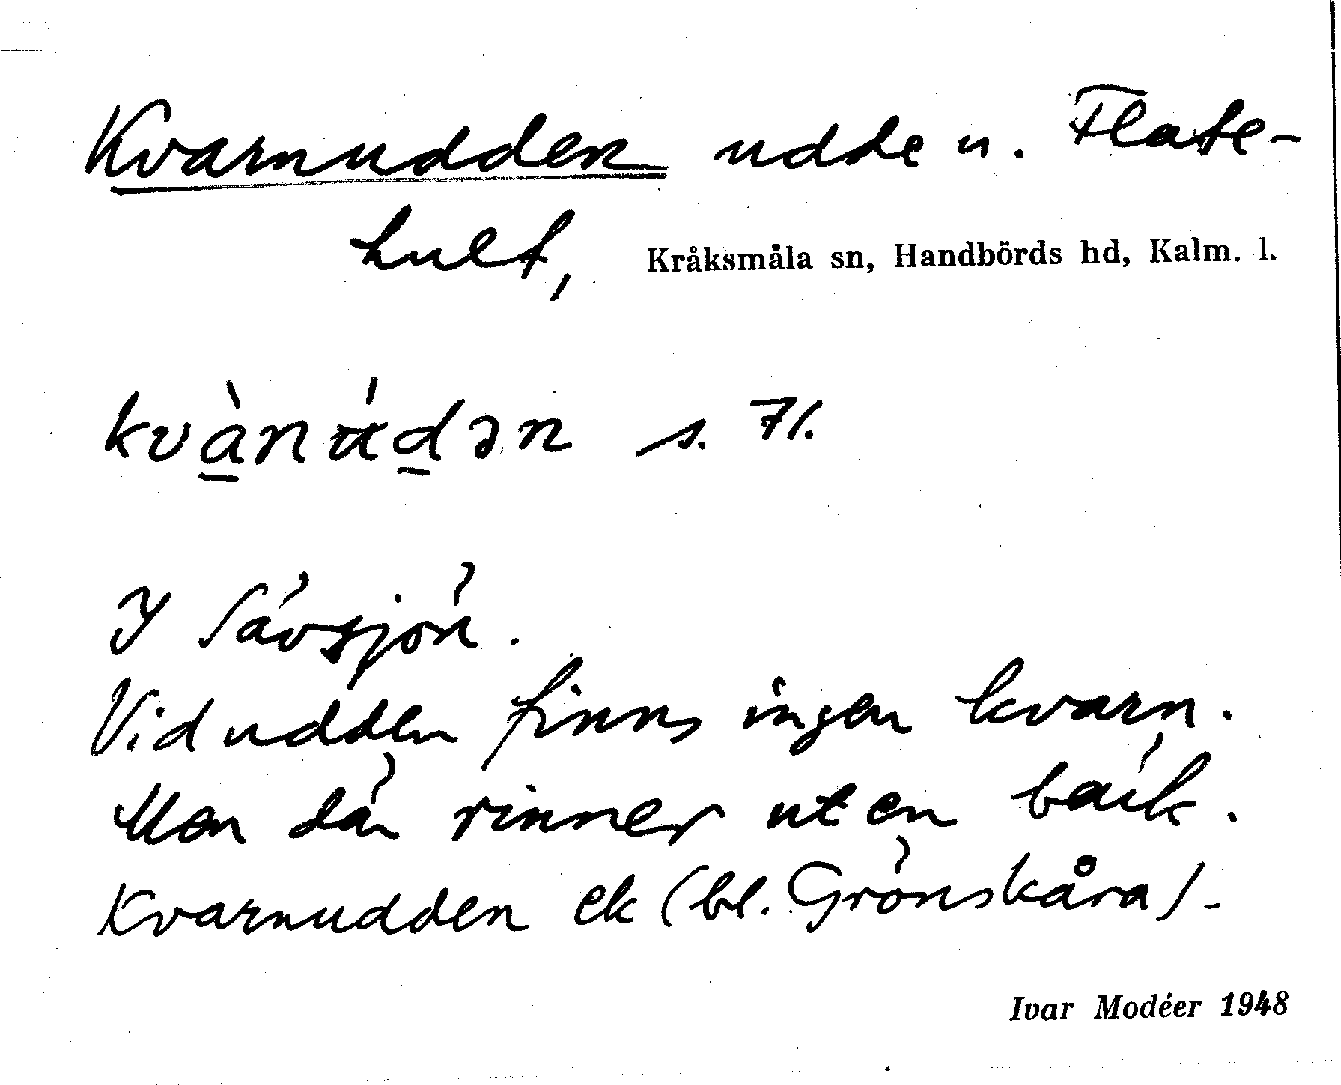 Kvarnudden udde u. Flate-
hult, Kråksmåla sn, Handbörds hd, Kalm. l.
kvànúdən s. 71.
I Sävsjön.
Vid udden finns ingen kvarn.
Men där rinner ut en bäck.
Kvarnudden ek (bl. Grönskåra).
Ivar Modéer 1948